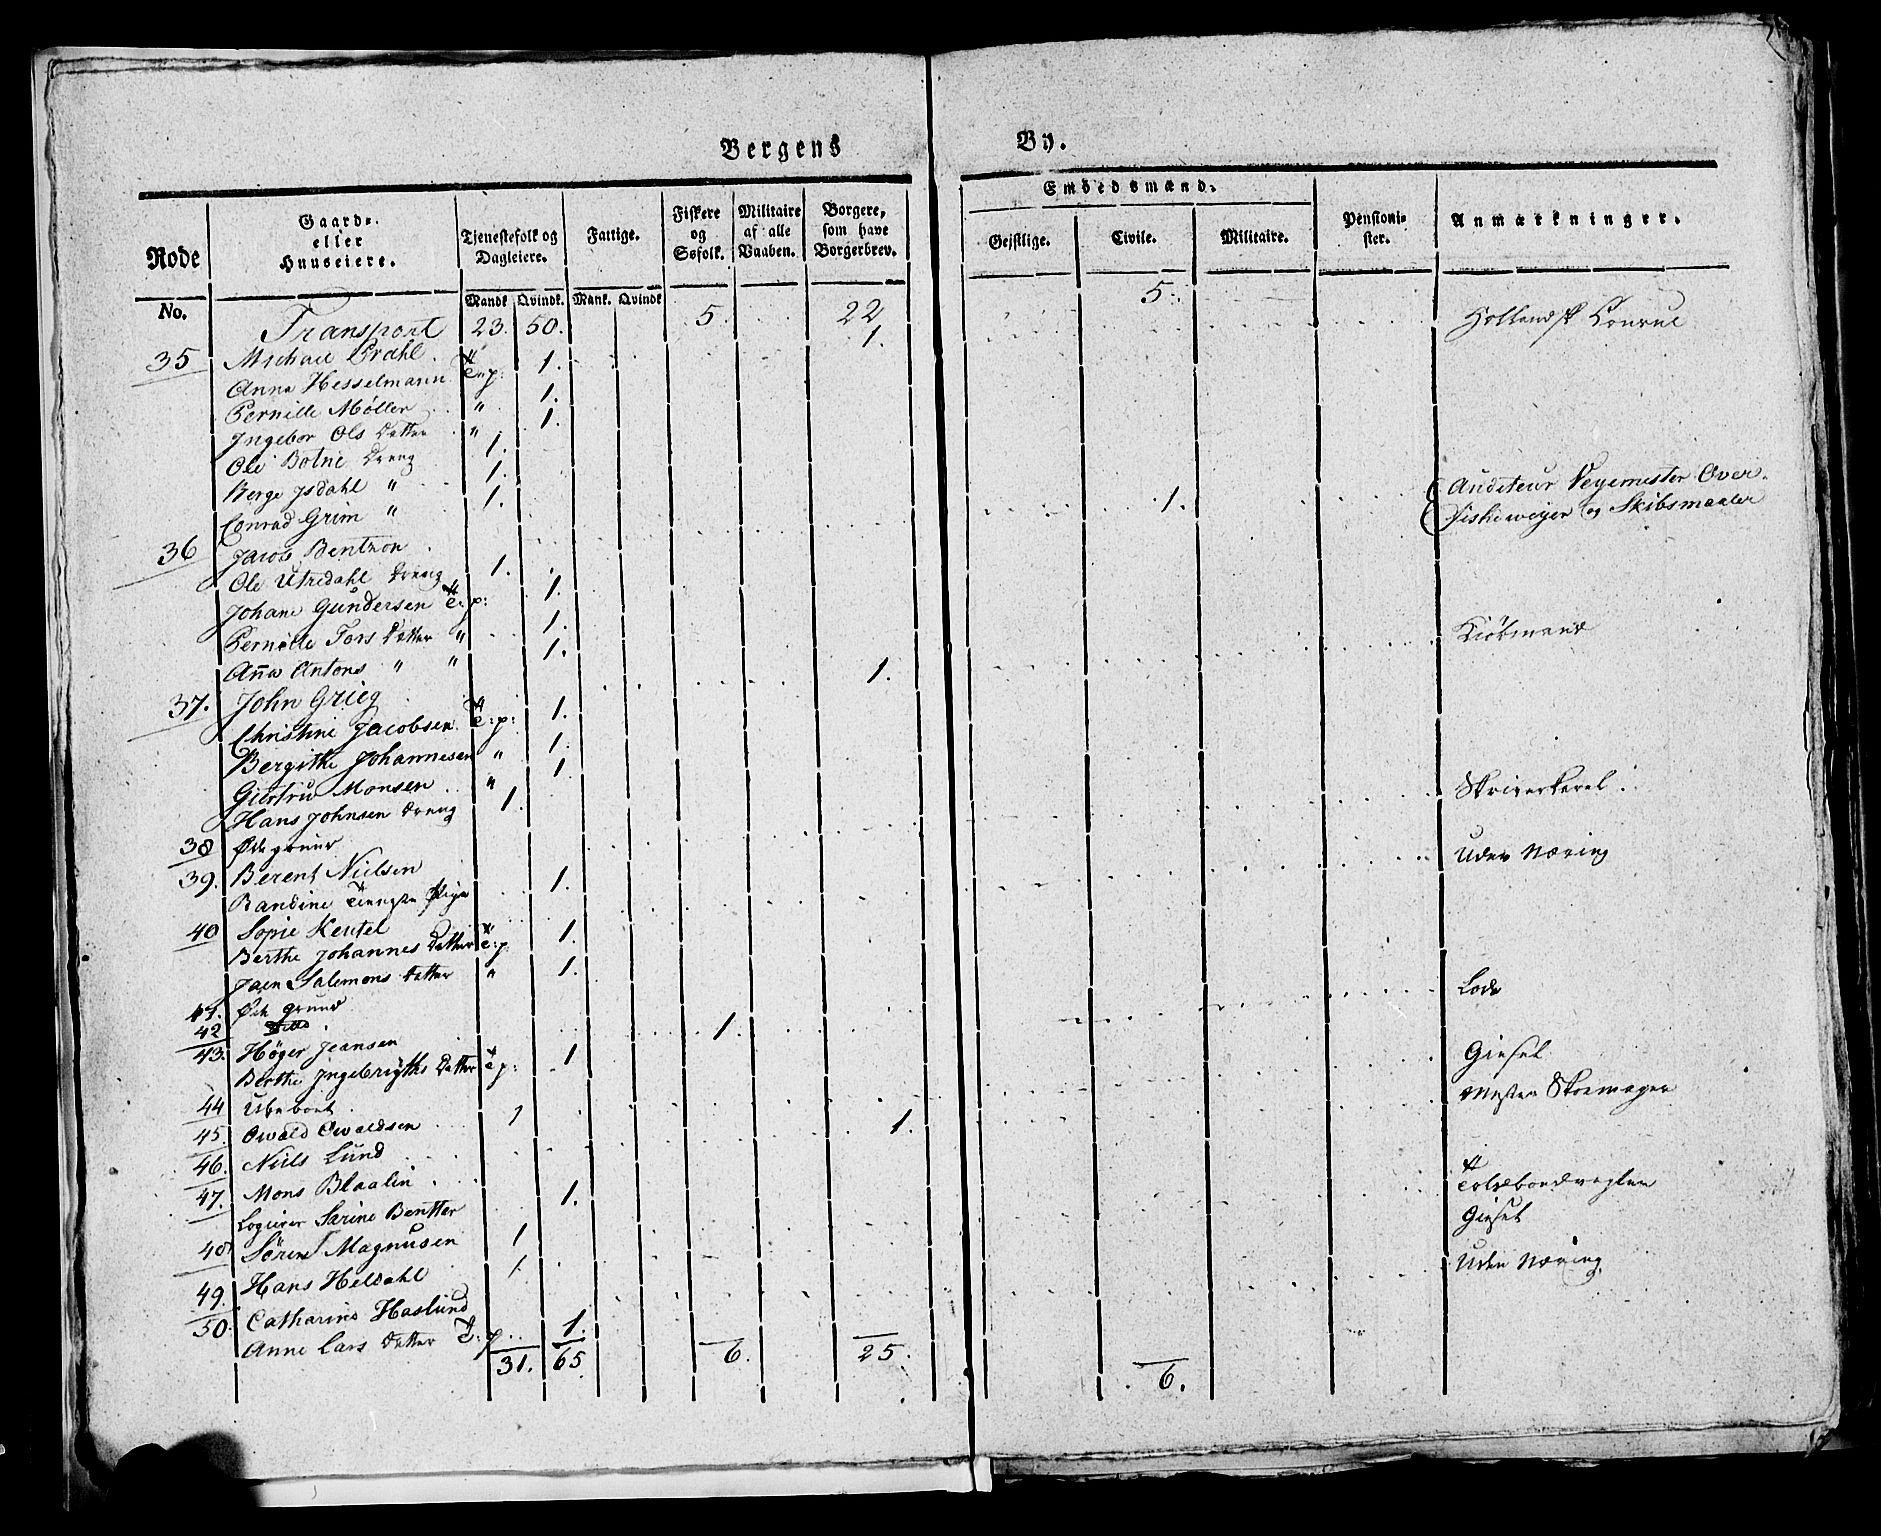 Bergens By.
Rode No. Gaard- eller Huuseiere. Tjenestefolk og Dagleiere. Fattige. Fiskere og Søfolk. Militaire af alle Vaaben. Borgere, som have Borgerbrev. Embedsmænd. Pensionister. Anmærkninger.
Mandk Qvindk. Mank. Qvindk Gejstlige. Civile. Militaire.
Transport 23. 50. 5. 22 5.
35 Michael Prahl 1. Hollandsk Consul
Anna Hesselmann T: p: 1.
Pernille Møller " 1.
Ingebor Ols Datter " 1.
Ole Botne Dreng 1.
Berge Isdahl " 1.
Conrad Grim " 1.
36 Jacob Bentzon 1. Auditeur Veyemester Over-
Fiskeweyer og Skibsmaaler
Ole Utredahl Dreng 1.
Johane Gundersen T: p: 1.
Pernille Tors Datter " 1.
Aña Antons " " 1.
37. John Grieg 1. Kiøbmand
Christine Jacobsen T: p: 1.
Bergithe Johannesen " 1.
Giertru Monsen " 1.
Hans Johnsen Dreng 1.
38 Øde grund
39. Berent Nielsen Skriverkarel
Bandine Tieneste Pige 1.
40 Sopie Keutel Uden Næring
Berthe Johannes Datter T: p: 1.
Jaen Salemons Datter " 1.
41. Øde grund
42
43. Høger Jeansen 1. Lods
Berthe Ingebrigths Datter T: p: 1
44 Ubeboet
45. Owald Owaldsen 1 Giesel
46. Niels Lund 1. Mester Skomager
47. Mons Blaalin
Logierer Sarine Bentter 1.
48 Søren Magnusen 1 Toldbodvagten
49. Hans Heldahl 1 Giesel
50. Catharine Haslund Uden Næring
Anne Lars Datter T: p. 1.
31. 65 6. 25. 6.